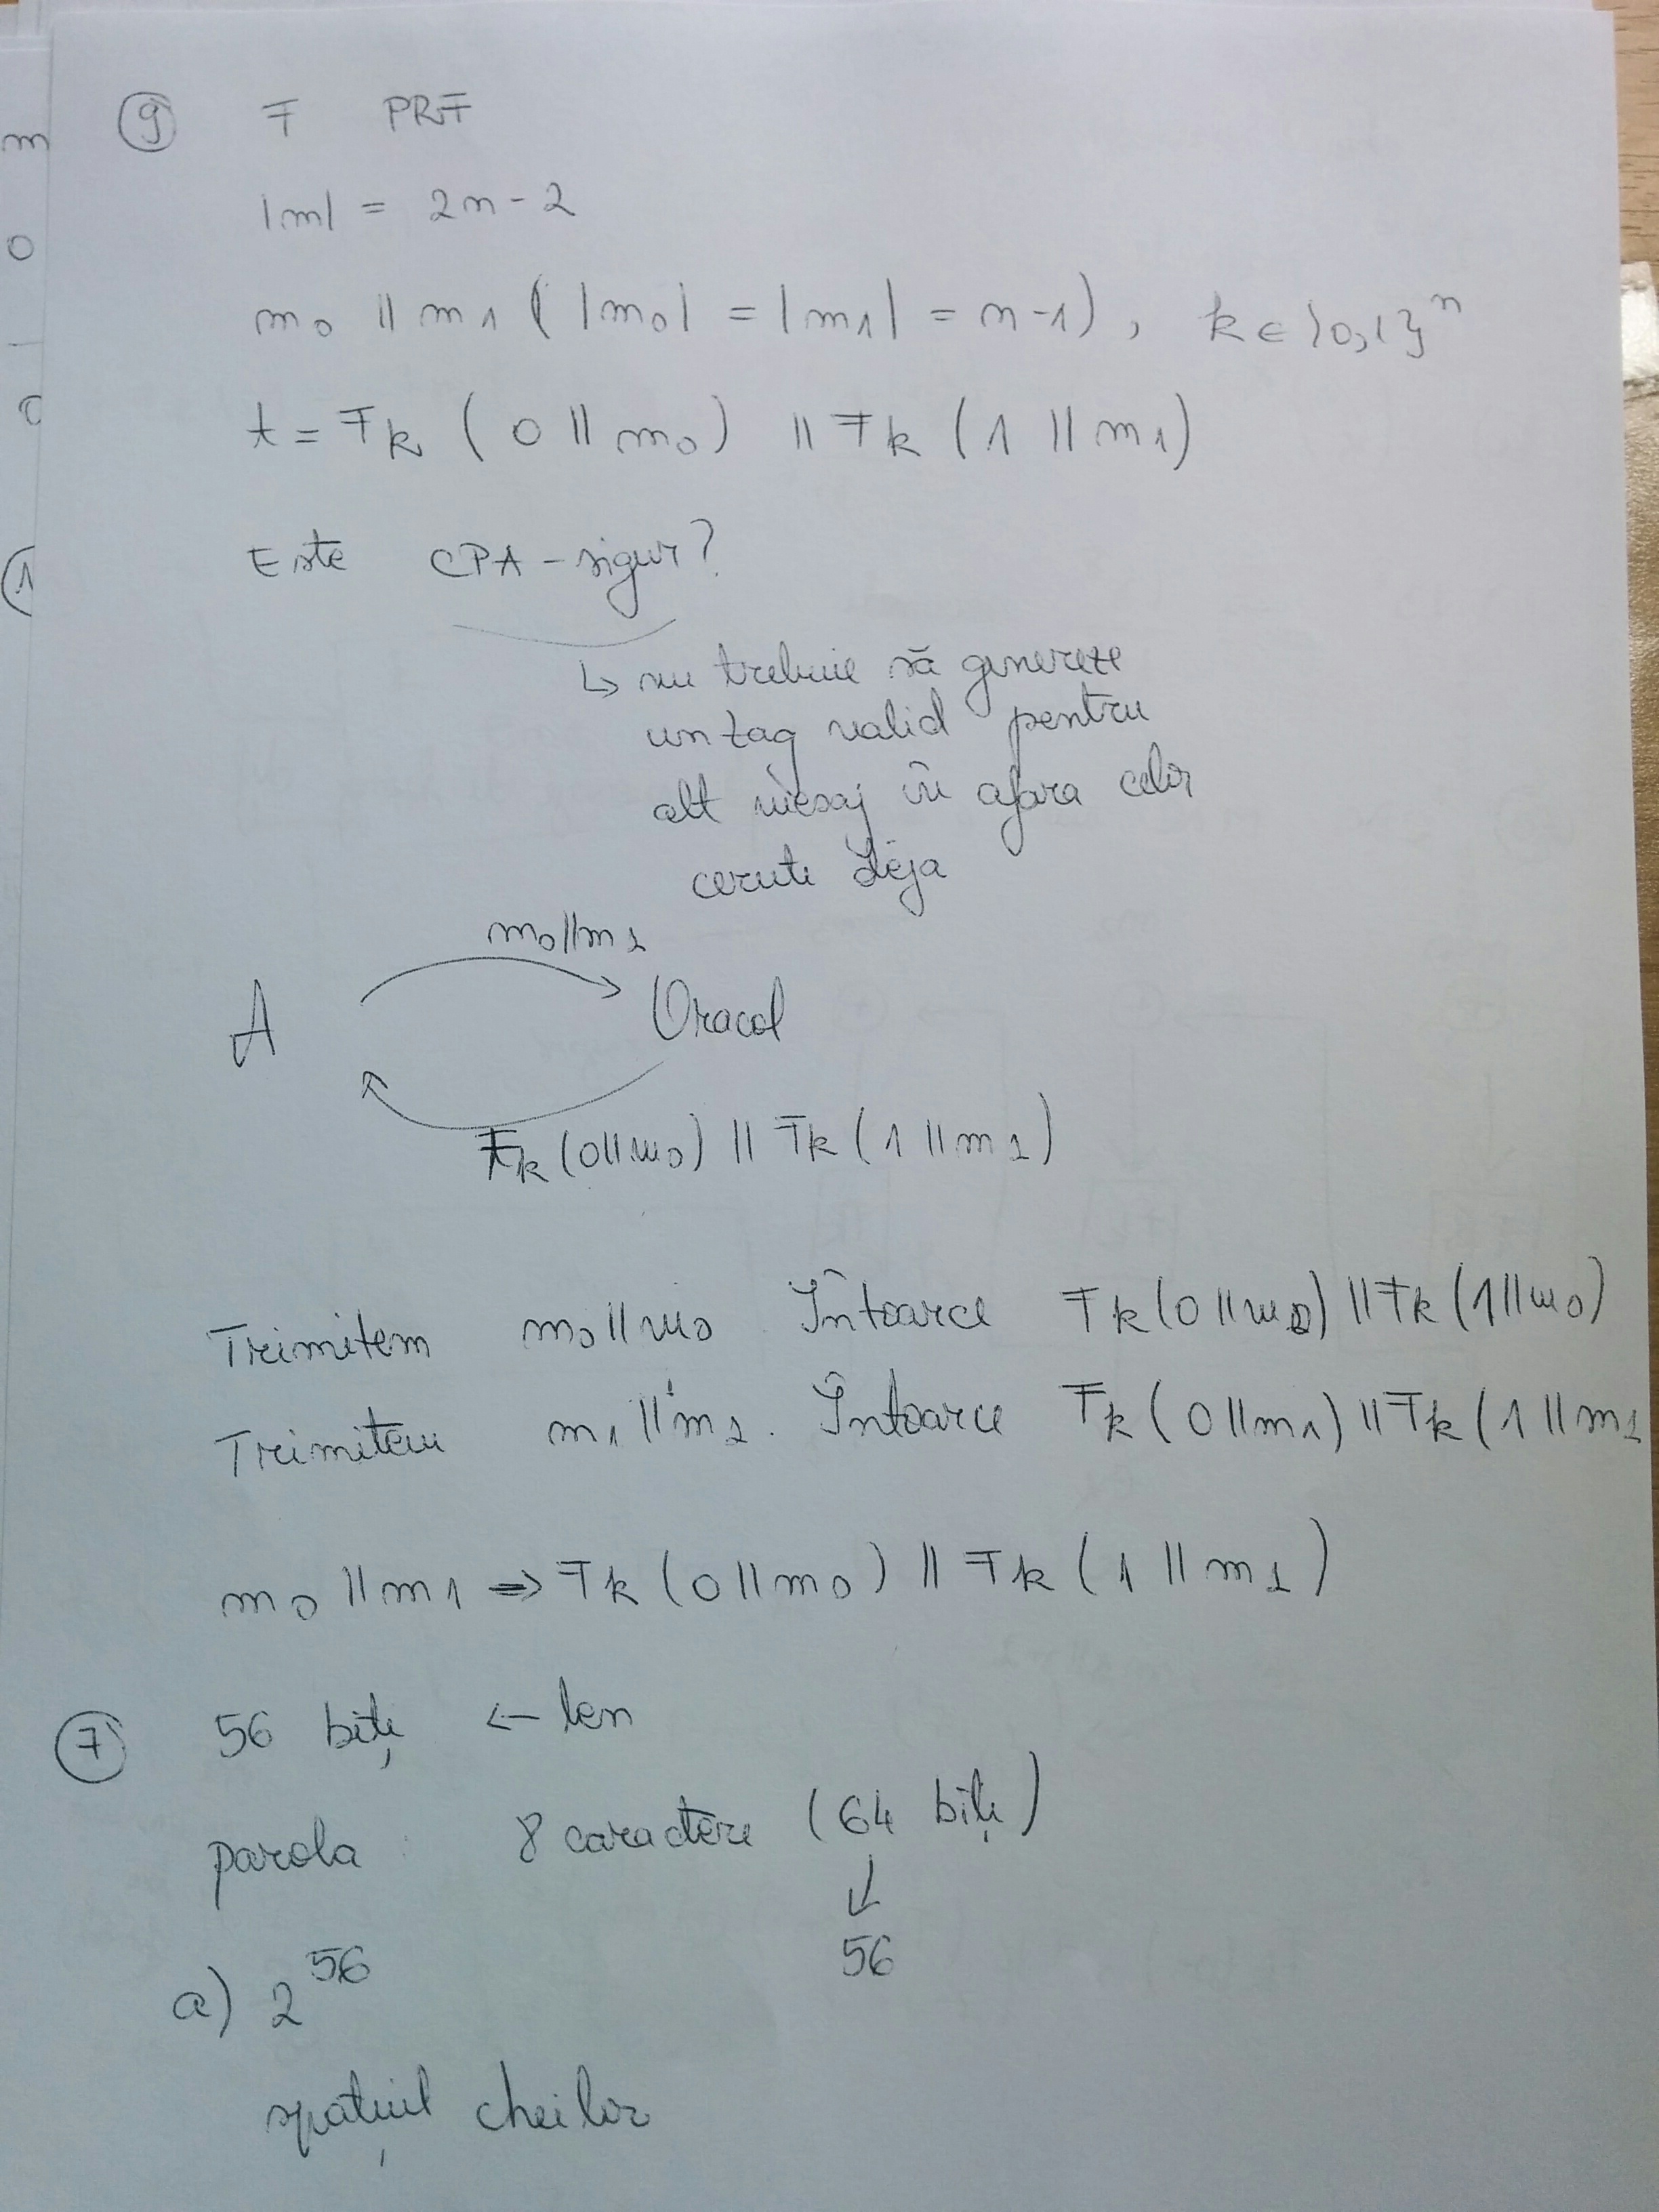 9 F PRF
|m| = 2n-2
m0 || m1 (|m0| = |m1| = n-1), k ∈ {0,1}^n
t = Fk (0 || m0) || Fk (1 || m1)
Este CPA-sigur?
↳ nu trebuie să genereze
un tag valid pentru
alt mesaj în afara celor
cerute deja
m0||m1
A Oracol
Fk(0||m0) || Fk(1||m1)
Trimitem m0||m0. Întoarce Fk(0||m0) || Fk(1||m0)
Trimitem m1||m1. Întoarce Fk(0||m1) || Fk(1||m1
m0 || m1 => Fk(0||m0) || Fk(1||m1)
7 56 biți ← len
parola 8 caractere (64 biți)
↓
56
a) 2^56
spațiul cheilor
m
0
1